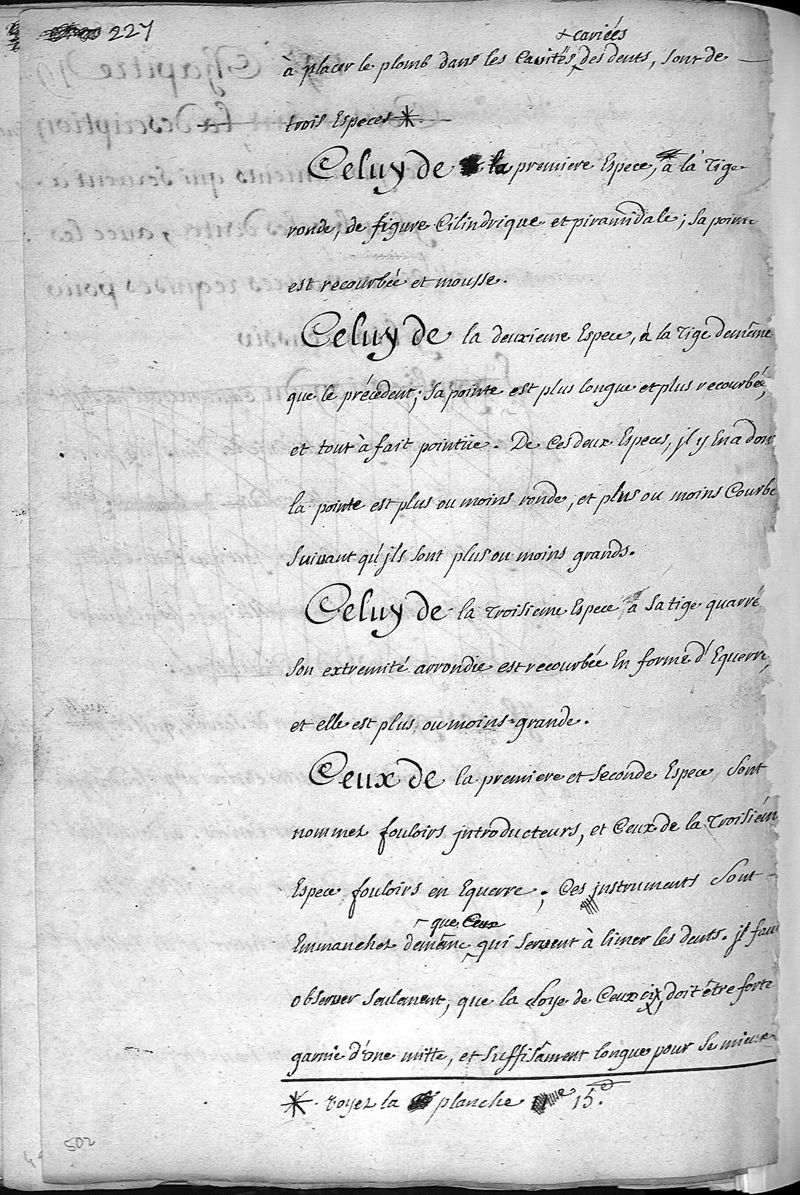 227
+ cariées
à placer le plomb dans les Cavités des dents, sont de
trois Especes *.
Celuy de la premiere Espece, à la Tige
ronde, de figure Cilindrique et piramidale; sa pointe
est recourbée et mousse.
Celuy de la deuxieme Espece, à la Tige demême
que le précédent; sa pointe est plus longue et plus recourbée,
et tout à fait pointüe. De Ces deux Especes, jl y En a dont
la pointe est plus ou moins ronde, et plus ou moins Courbe
suivant qu'jls sont plus ou moins grands.
Celuy de la Troisieme Espece à sa tige quarré
son extremité arrondie est recourbée En forme d'Equerre,
et elle est plus ou moins grande.
Ceux de la premiere et seconde Espece, sont
nommez fouloirs jntroducteurs, et Ceux de la Troisiém
Espece fouloirs en Equerre; Ces jnstruments sont
que Ceux
Emmanchez demême qui servent à limer les dents. jl faut
observer seulement, que la soye de Ceux ci, doit être forte
garnie d'une mitte, et suffisâment longue pour se mieux
* voyez la planche 15.e
502